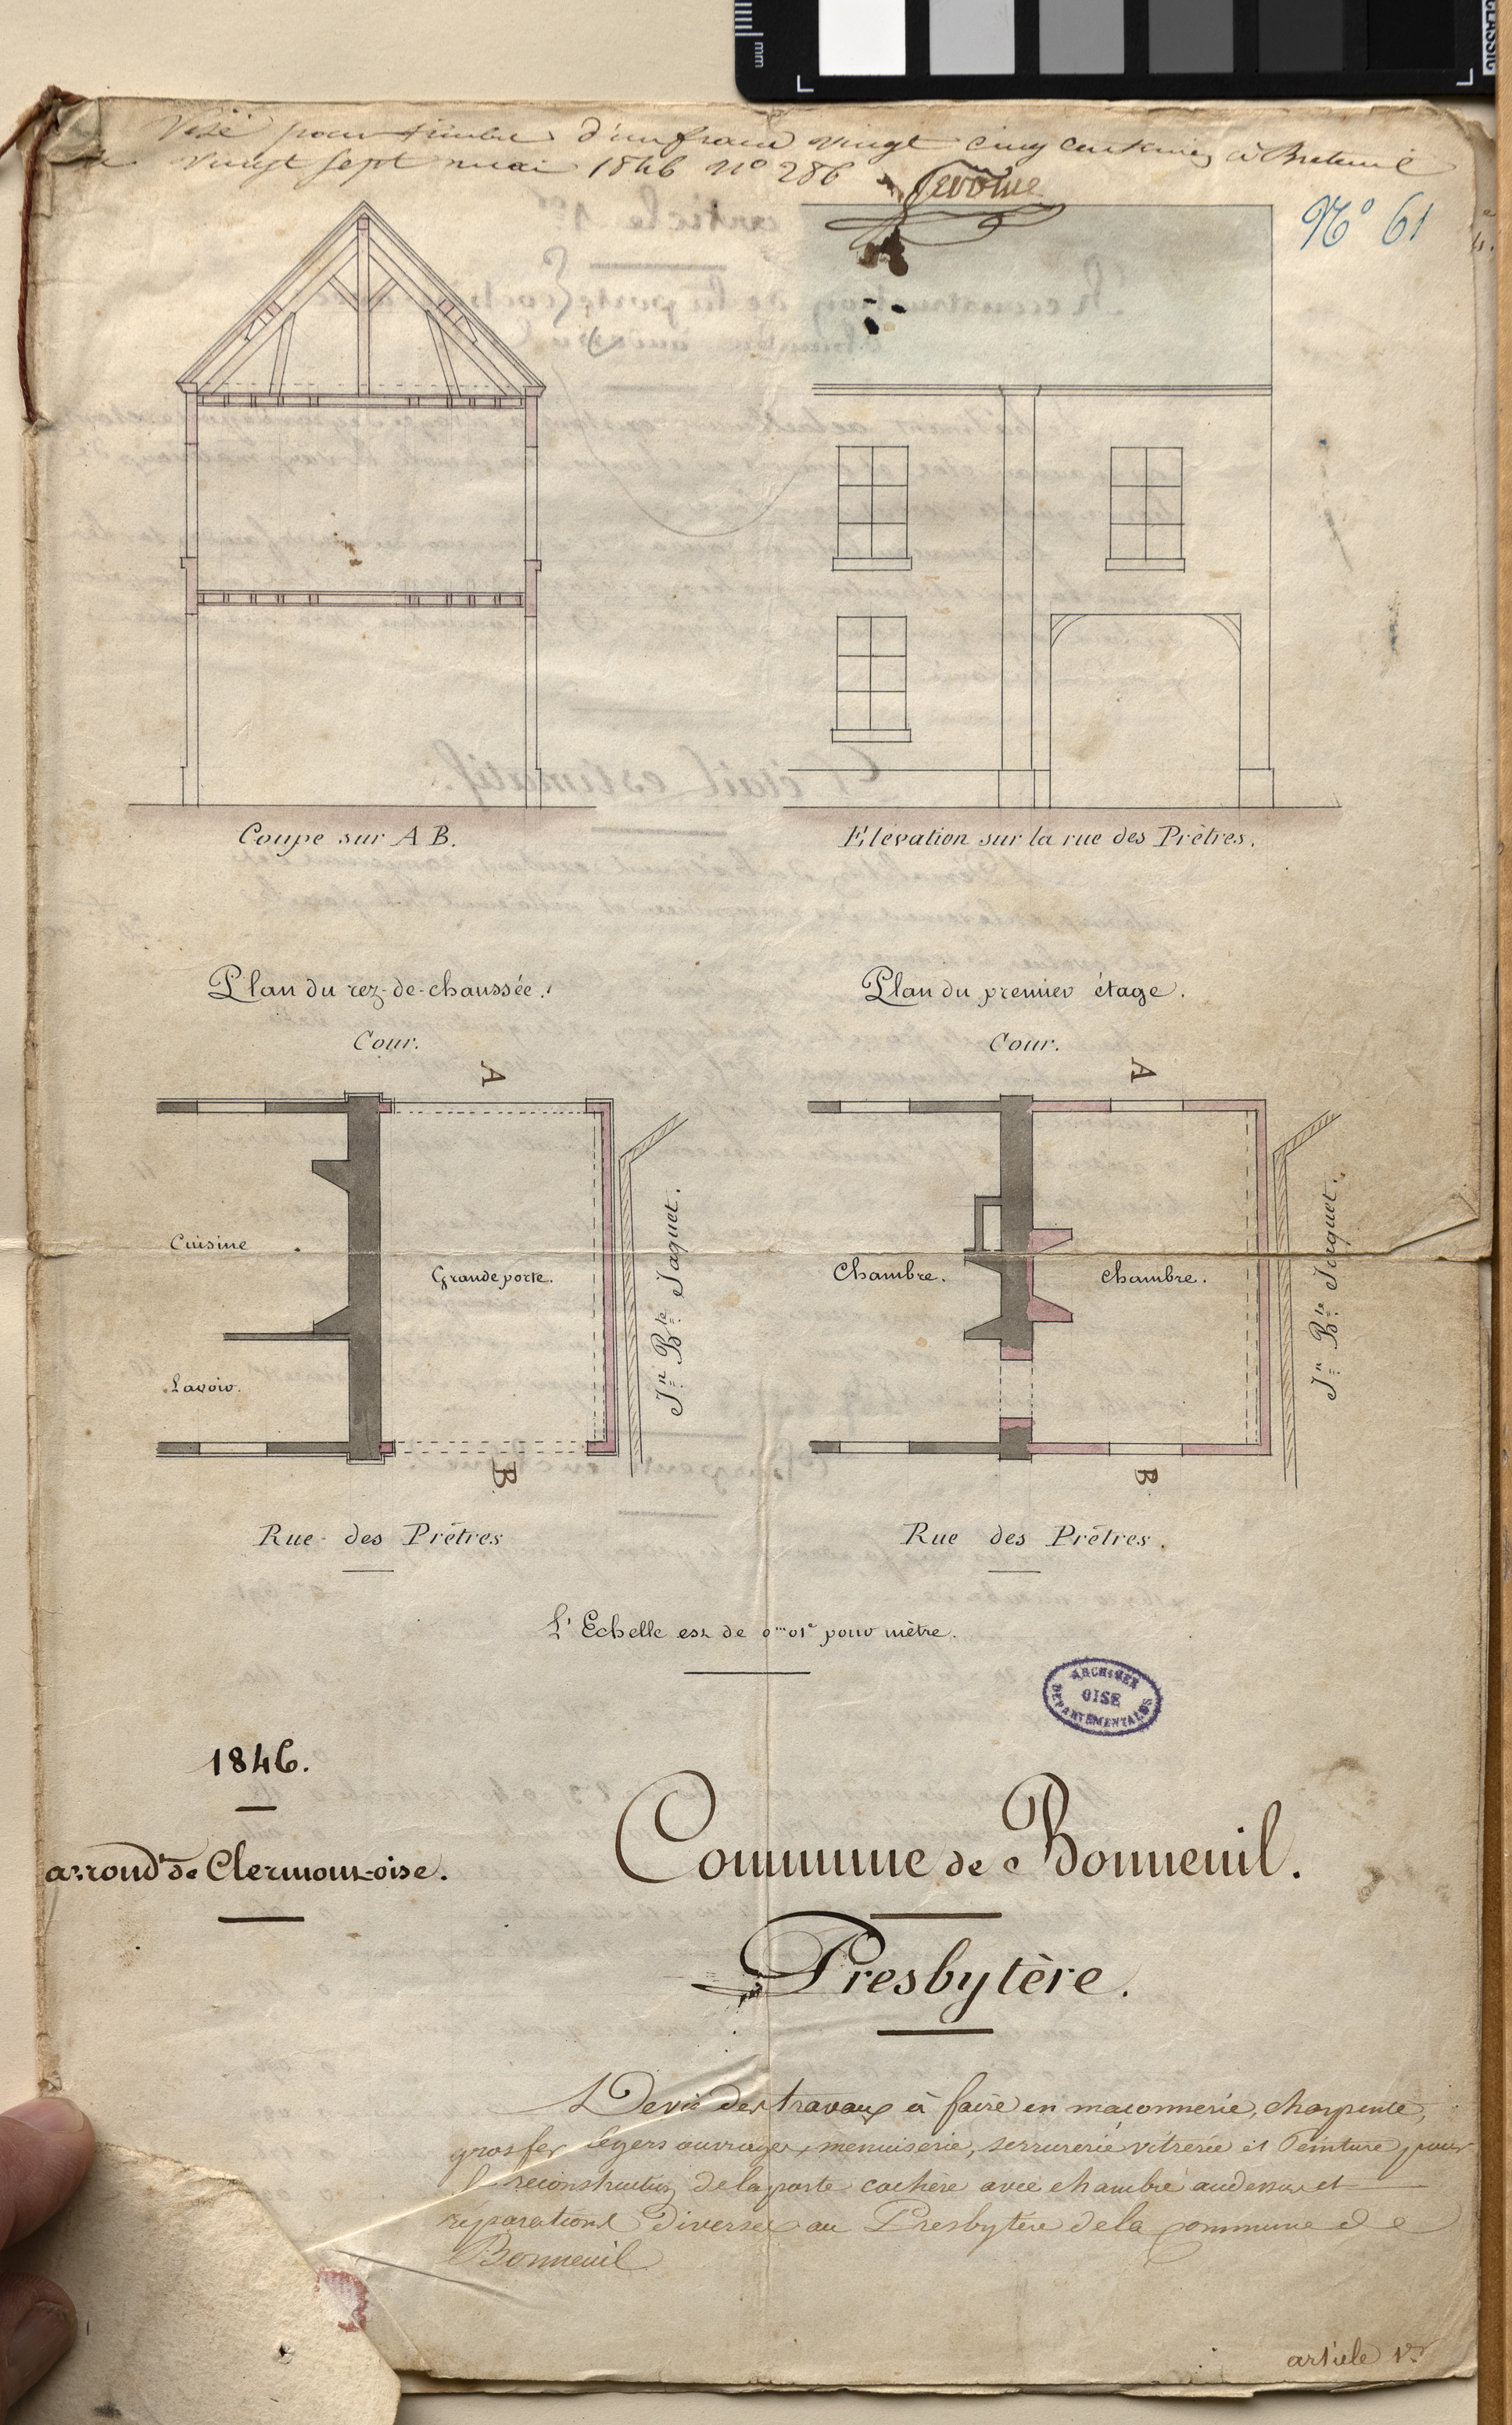 Visé pour timbre d'un franc vingt cinq centimes à Breteuil
le vingt sept mai 1846 n° 286
N° 61
Coupe sur A B.
Elévation sur la rue des Prêtres.
Plan du rez-de-chaussée.
Cour.
A
Cuisine
Grande porte.
Lavoir.
Jn. Bte. Jaquet.
B
Rue des Prêtres
Plan du premier étage.
Cour.
A
Chambre.
chambre.
Jn. Bte. Jaquet.
B
Rue des Prêtres.
L'Echelle est de 0m01c pour mètre.
ARCHIVES
OISE
DÉPARTEMENTALES
1846.
arrondt de Clermont-oise.
Commune de Bonneuil.
Presbytère.
Devis des travaux à faire en maconnerie, charpente,
gros fer, légers ouvrages, menuiserie, serrurerie vitrerie et Peinture, pour
la reconstruction de la porte cochère avec chambre au dessus et
réparations diverses au Presbytère de la commune de
Bonneuil
article 1er